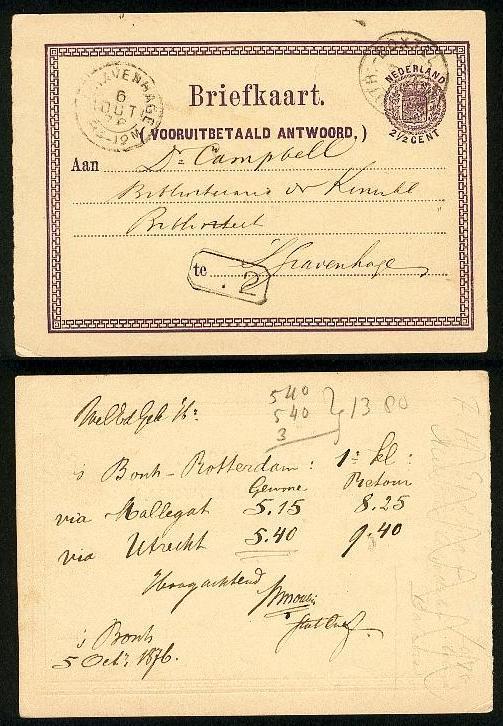 Briefkaart.
(VOORUITBETAALD ANTWOORD,)
NEDERLAND
2½ CENT
GRAVENHAGE
6
OCT
Aan Dr. Campbell
Bibliothecaris der Koninkl.
Bibliotheek
te 'sGravenhage
2
WelEdGeb Hr.
540
540
3
1380
's Bosch - Rotterdam: 1e kl:
Gewone Retour
via Mallegat 5.15 8.25
via Utrecht 5.40 9.40
Hoogachtend
's Bosch
5 Oct. 1876.